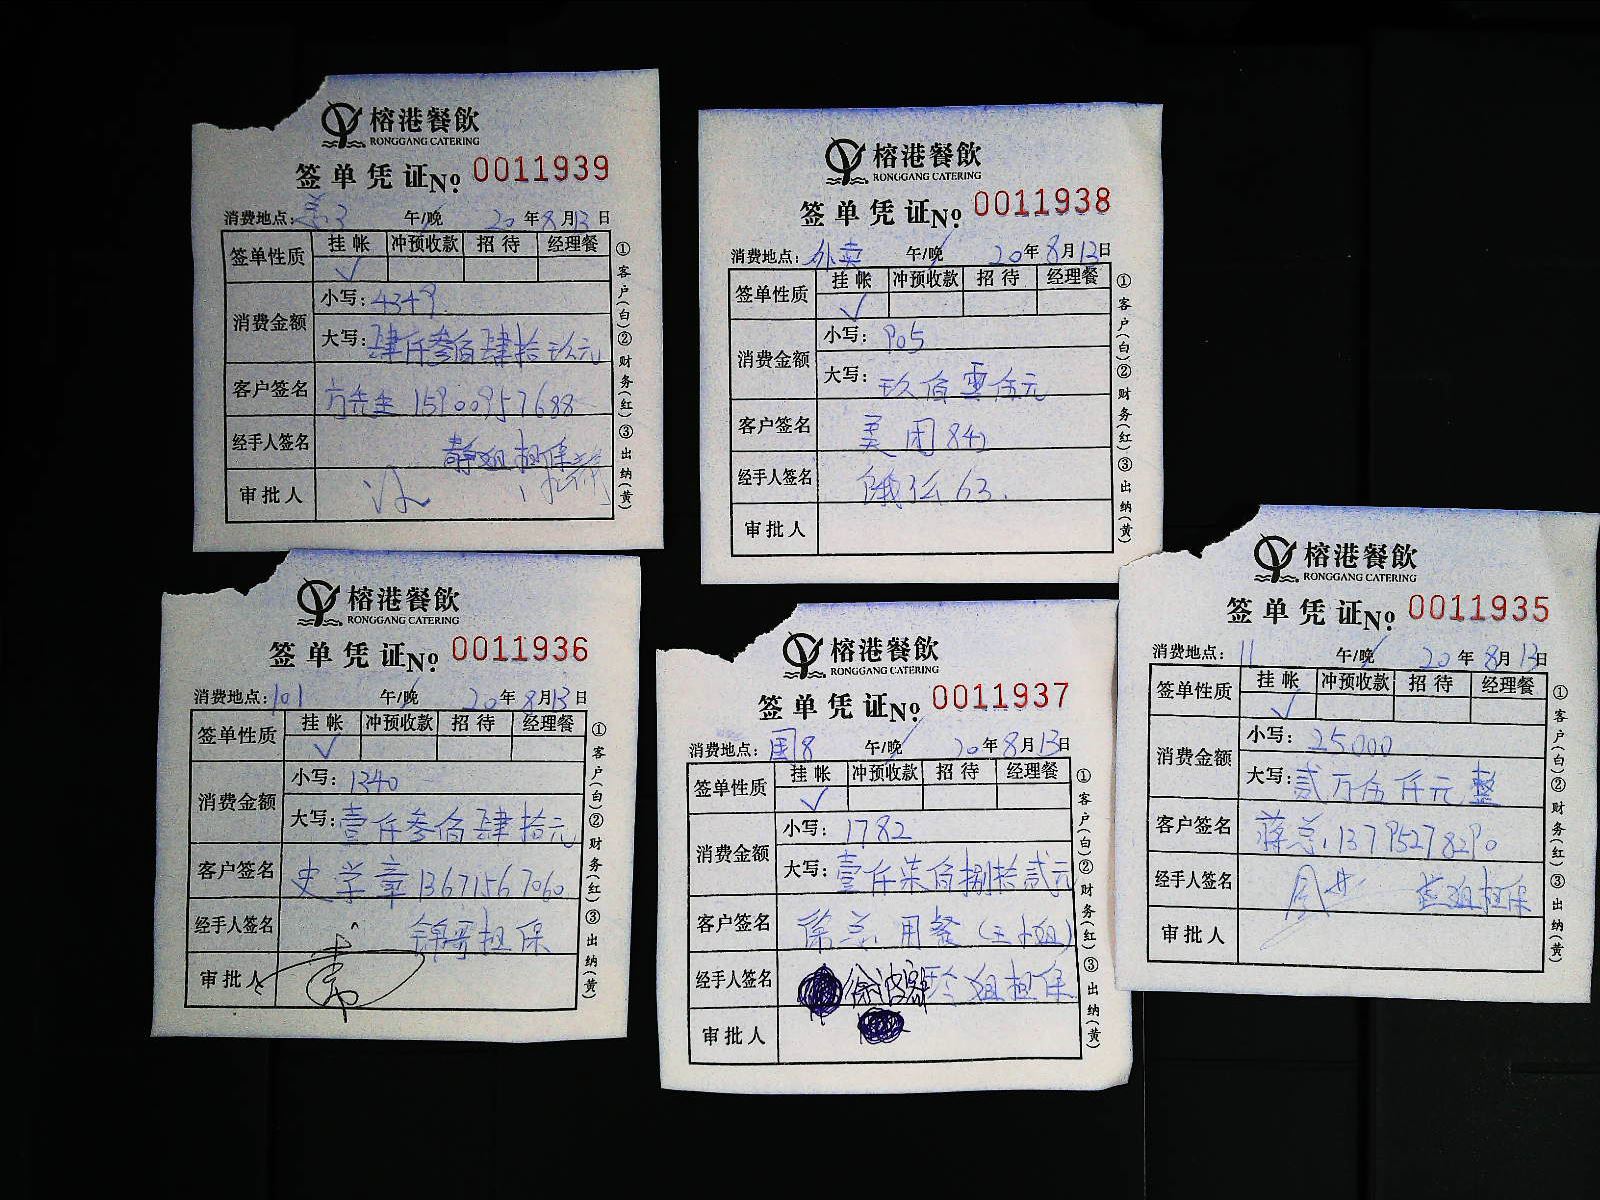 榕港餐飲
RONGGANG CATERING
签单凭证No. 0011939
消费地点: 午/晚 20年8月13日
签单性质 挂帐 冲预收款 招待 经理餐
✓
消费金额 小写: 4349
大写: 肆仟叁佰肆拾玖元
客户签名 方先生 15900957688
经手人签名 静姐担保
审批人
①客户(白)②财务(红)③出纳(黄)
榕港餐飲
RONGGANG CATERING
签单凭证No. 0011938
消费地点: 外卖 午/晚 20年8月13日
签单性质 挂帐 冲预收款 招待 经理餐
✓
消费金额 小写: 905
大写: 玖佰零伍元
客户签名 美团842
经手人签名 饿么63.
审批人
①客户(白)②财务(红)③出纳(黄)
榕港餐飲
RONGGANG CATERING
签单凭证No. 0011936
消费地点: 101 午/晚 20年8月13日
签单性质 挂帐 冲预收款 招待 经理餐
✓
消费金额 小写: 1340
大写: 壹仟叁佰肆拾元
客户签名 史学章 13671567060
经手人签名 锦哥担保
审批人
①客户(白)②财务(红)③出纳(黄)
榕港餐飲
RONGGANG CATERING
签单凭证No. 0011937
消费地点: 国8 午/晚 20年8月13日
签单性质 挂帐 冲预收款 招待 经理餐
✓
消费金额 小写: 1782
大写: 壹仟柒佰捌拾贰元
客户签名 徐总用餐(王小姐)
经手人签名 玲姐担保
审批人
①客户(白)②财务(红)③出纳(黄)
榕港餐飲
RONGGANG CATERING
签单凭证No. 0011935
消费地点: 11 午/晚 20年8月13日
签单性质 挂帐 冲预收款 招待 经理餐
✓
消费金额 小写: 25000
大写: 贰万伍仟元整
客户签名 蒋总 13795278290
经手人签名 姐担保
审批人
①客户(白)②财务(红)③出纳(黄)